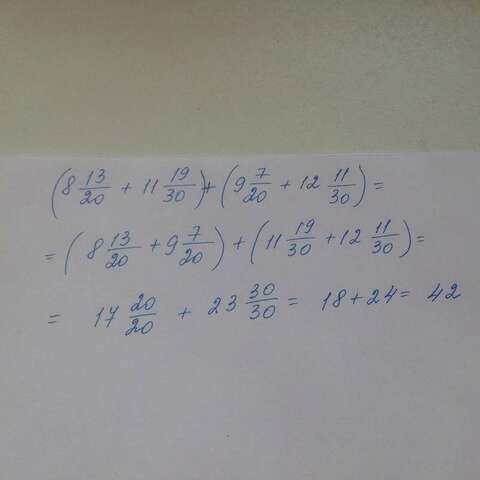 (8 13/20 + 11 19/30) + (9 7/20 + 12 11/30) =
= (8 13/20 + 9 7/20) + (11 19/30 + 12 11/30) =
= 17 20/20 + 23 30/30 = 18 + 24 = 42